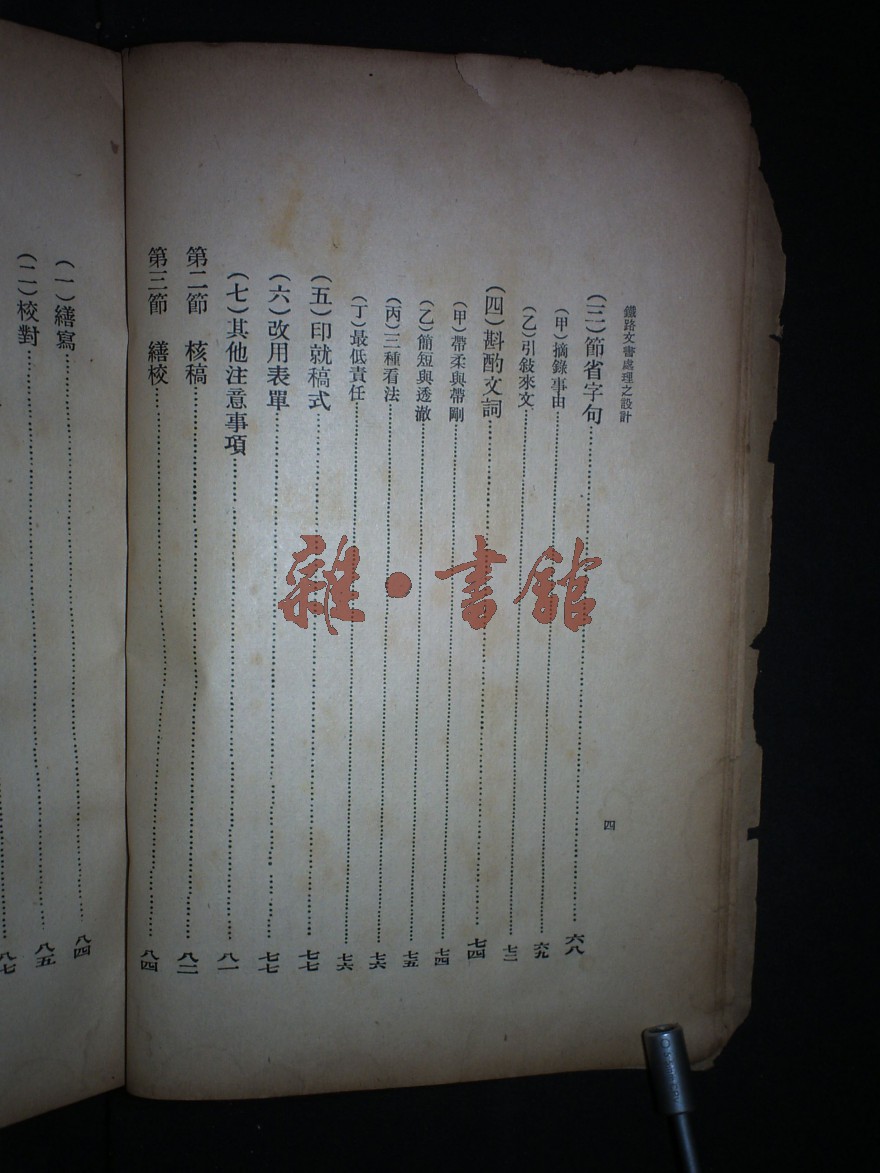 鐵路文書處理之設計
四
(三)節省字句……六八
(甲)摘錄事由……六九
(乙)引敍來文……七二
(四)斟酌文詞……七四
(甲)帶柔與帶剛……七四
(乙)簡短與透澈……七五
(丙)三種看法……七六
(丁)最低責任……七六
(五)印就稿式……七七
(六)改用表單……七七
(七)其他注意事項……八一
第二節　核稿……八二
第三節　繕校……八四
(一)繕寫……八四
(二)校對……八五
八七
雜·書館